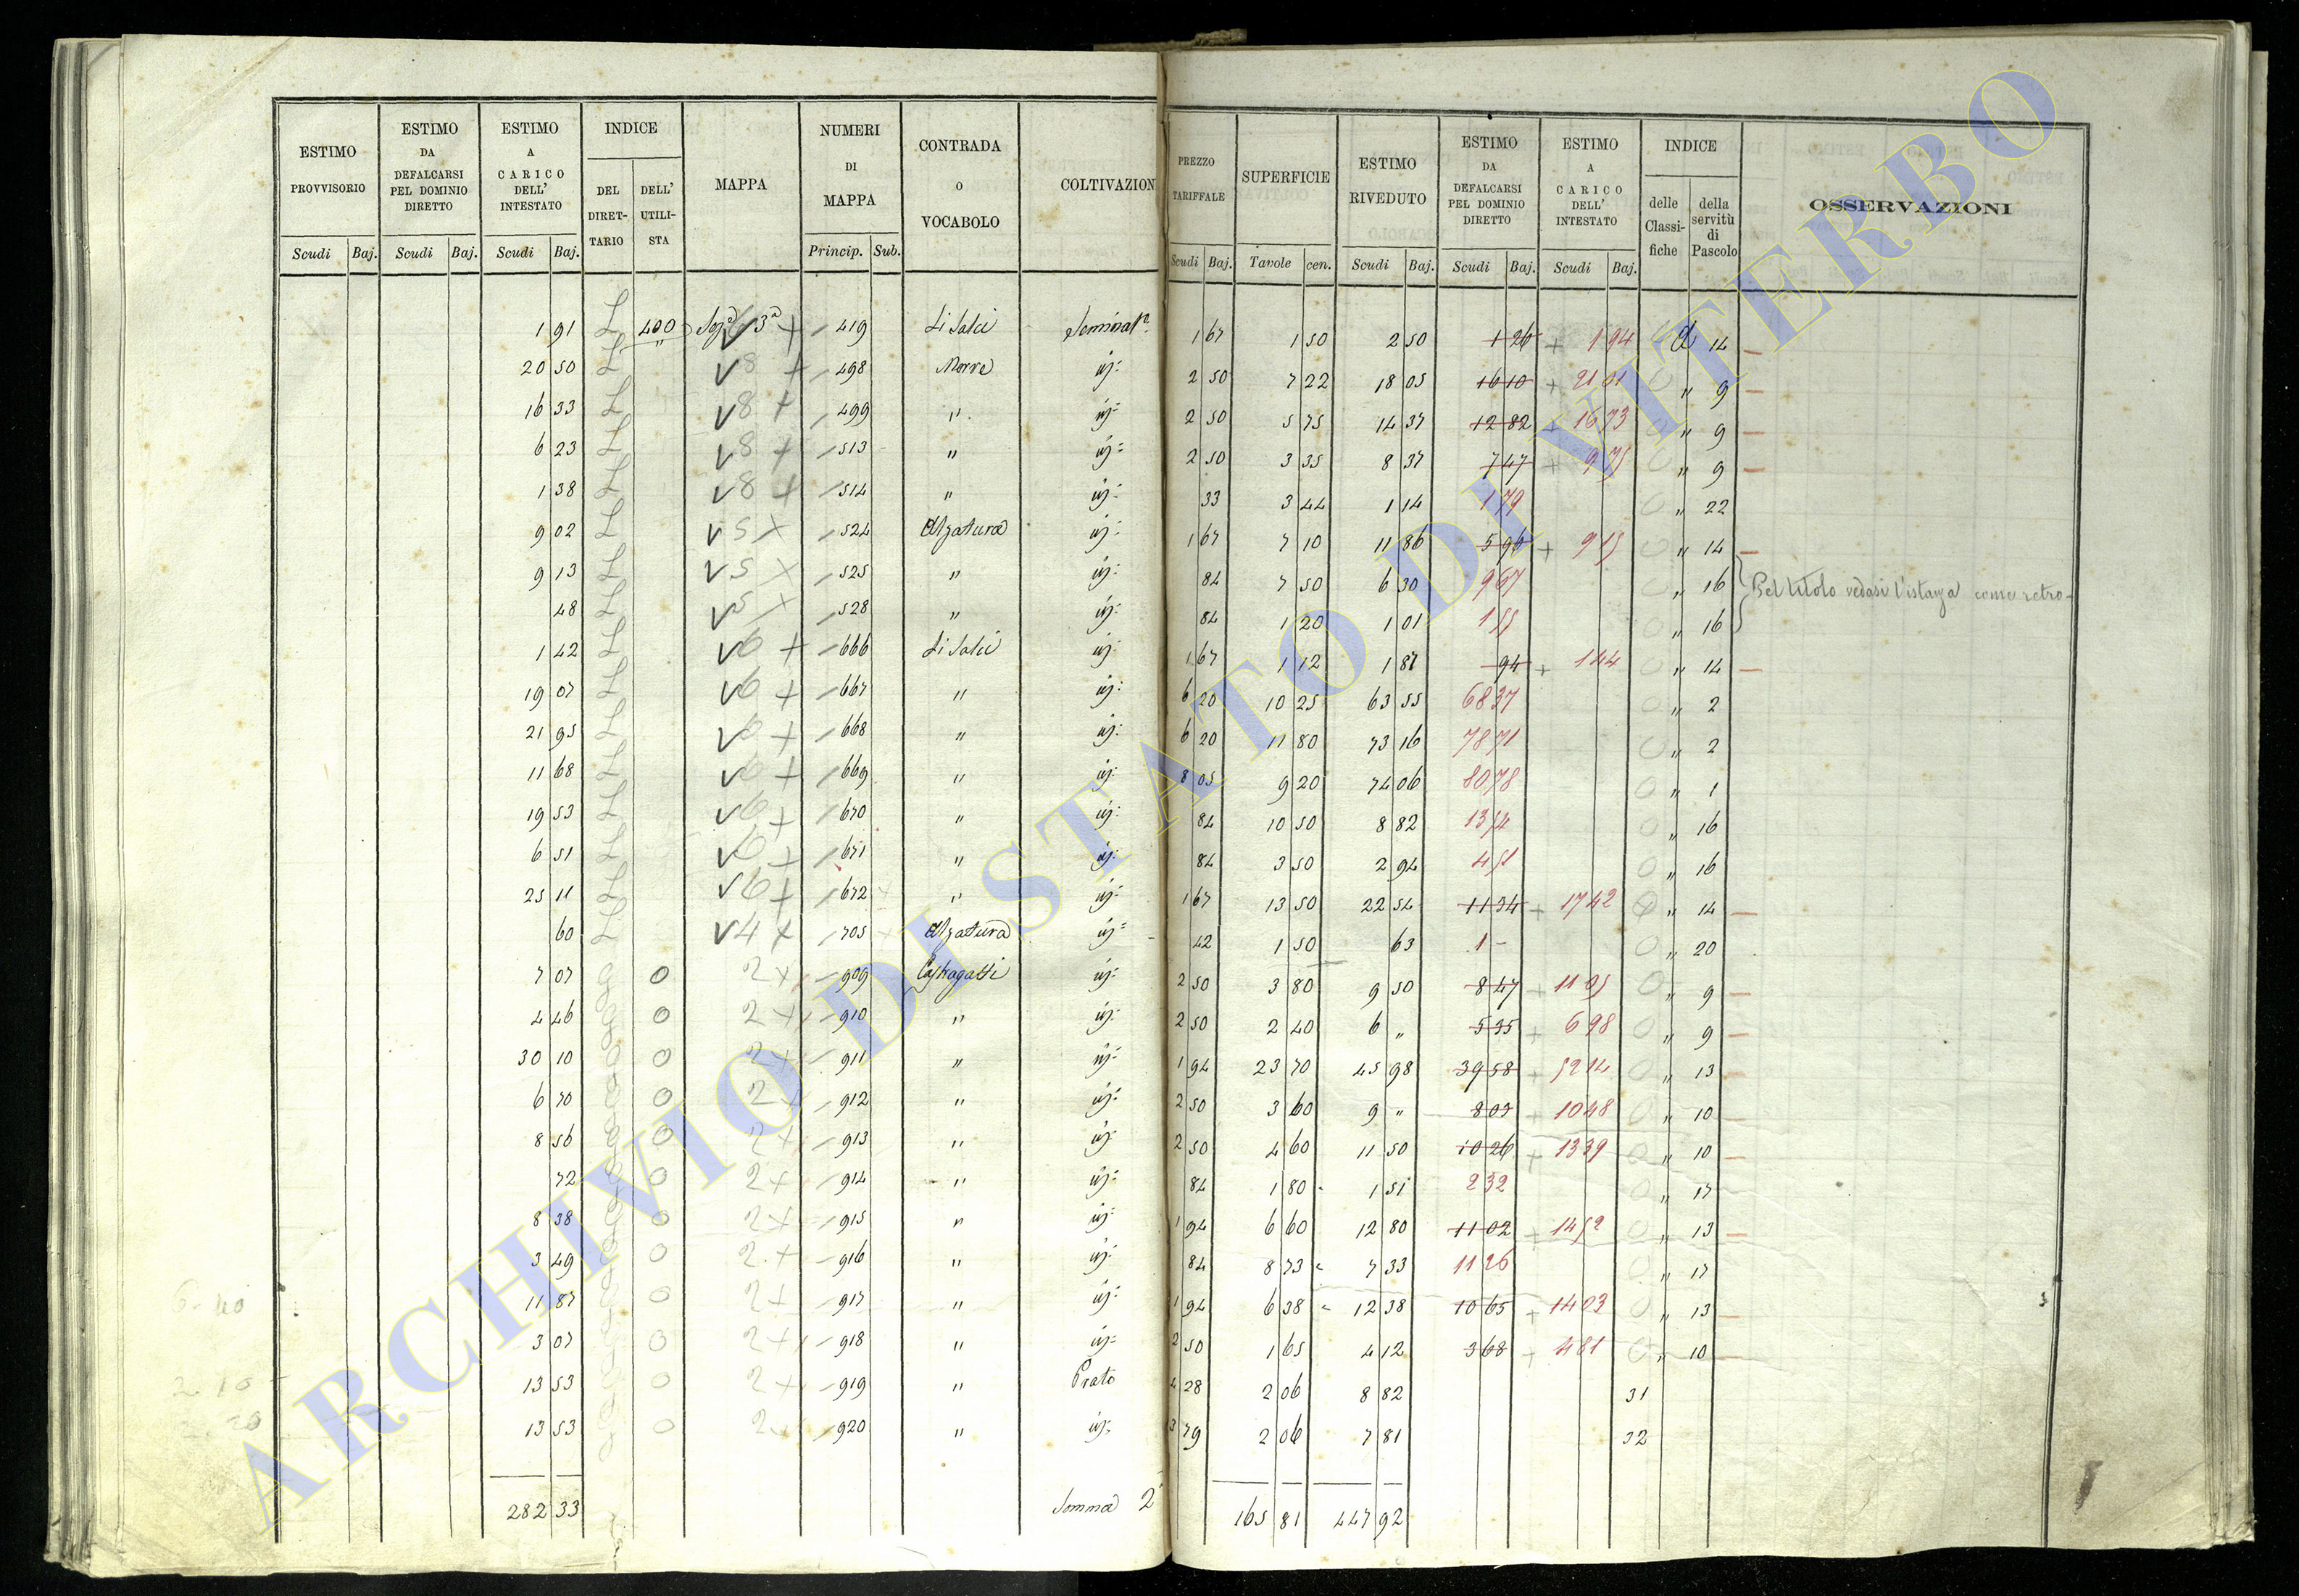 ESTIMO PROVVISORIO
Scudi Baj.
ESTIMO DA DEFALCARSI PEL DOMINIO DIRETTO
Scudi Baj.
ESTIMO A CARICO DELL' INTESTATO
Scudi Baj.
INDICE
DEL DIRET- TARIO
DELL' UTILI- STA
MAPPA
NUMERI DI MAPPA
Princip. Sub.
CONTRADA O VOCABOLO
COLTIVAZION
PREZZO TARIFFALE
Scudi Baj.
SUPERFICIE
Tavole cen.
ESTIMO RIVEDUTO
Scudi Baj.
ESTIMO DA DEFALCARSI PEL DOMINIO DIRETTO
Scudi Baj.
ESTIMO A CARICO DELL' INTESTATO
Scudi Baj.
INDICE
delle Classi- fiche
della servitù di Pascolo
OSSERVAZIONI
1 91 L 400 3ª + 419 Li Salci 1 67 1 50 2 50 1 26 + 1 94 14
20 50 L V 8 + 498 Morre 2 50 7 22 18 05 16 10 + 21 01 " 9
16 33 L V 8 + 499 " 2 50 5 75 14 37 12 82 + 16 73 " 9
6 23 L V 8 + 513 " 2 50 3 35 8 37 7 47 + 9 75 " 9
1 38 L V 8 + 514 " 33 3 44 1 14 1 79 " 22
9 02 L V 5 X 524 Alzatura 1 67 7 10 11 86 5 96 + 9 15 " 14
9 13 L V 5 X 525 " 84 7 50 6 30 9 67 " 16 Pel titolo vedasi l'istanza come retro
48 L V 5 X 528 " 84 1 20 1 01 1 55 " 16
1 42 L V 6 + 666 Li Salci 1 67 1 12 1 87 94 + 1 44 " 14
19 07 L V 6 + 667 " 6 20 10 25 63 55 68 37 " 2
21 95 L V 6 + 668 " 6 20 11 80 73 16 78 71 " 2
11 68 L V 6 + 669 " 8 05 9 20 74 06 80 78 " 1
19 53 L V 6 + 670 " 84 10 50 8 82 13 54 " 16
6 51 L V 6 + 671 " 84 3 50 2 94 4 51 " 16
25 11 L V 6 + 672 " 1 67 13 50 22 54 11 34 + 17 42 " 14
60 L V 4 X 705 Alzatura 42 1 50 63 1 - " 20
7 07 0 2 + 909 2 50 3 80 9 50 8 47 + 11 05 " 9
4 46 0 2 + 910 " 2 50 2 40 6 " 5 35 + 6 98 " 9
30 10 0 2 + 911 " 1 94 23 70 45 98 39 58 + 52 14 " 13
6 70 0 2 + 912 " 2 50 3 60 9 " 8 03 + 10 48 " 10
8 56 0 2 + 913 " 2 50 4 60 11 50 10 26 + 13 39 " 10
72 0 2 + 914 " 84 1 80 1 51 2 32 " 17
8 38 0 2 + 915 " 1 94 6 60 12 80 11 02 + 14 52 " 13
3 49 0 2 + 916 " 84 8 73 7 33 11 26 " 17
11 87 0 2 + 917 " 1 94 6 38 12 38 10 65 + 14 03 " 13
3 07 0 2 + 918 " 2 50 1 65 4 12 3 68 + 4 81 " 10
13 53 0 2 + 919 " Prato 4 28 2 06 8 82 31
13 53 0 2 + 920 " 3 79 2 06 7 81 32
282 33 Somma 2 165 81 447 92
ARCHIVIO DI STATO DI VITERBO